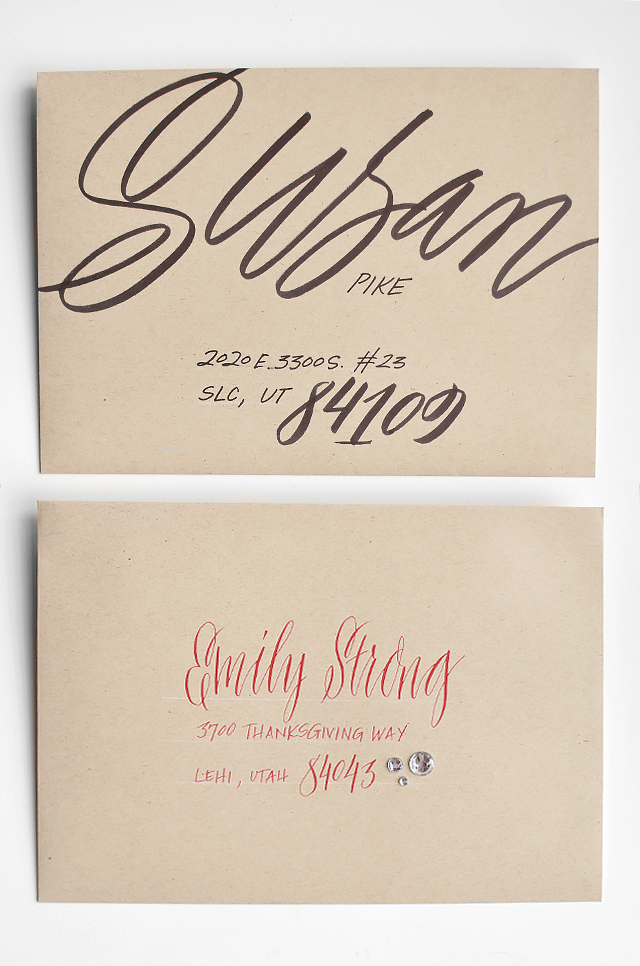 Susan
PIKE
2020 E. 3300 S. #23
SLC, UT 84109
Emily Strong
3700 THANKSGIVING WAY
LEHI, UTAH 84043